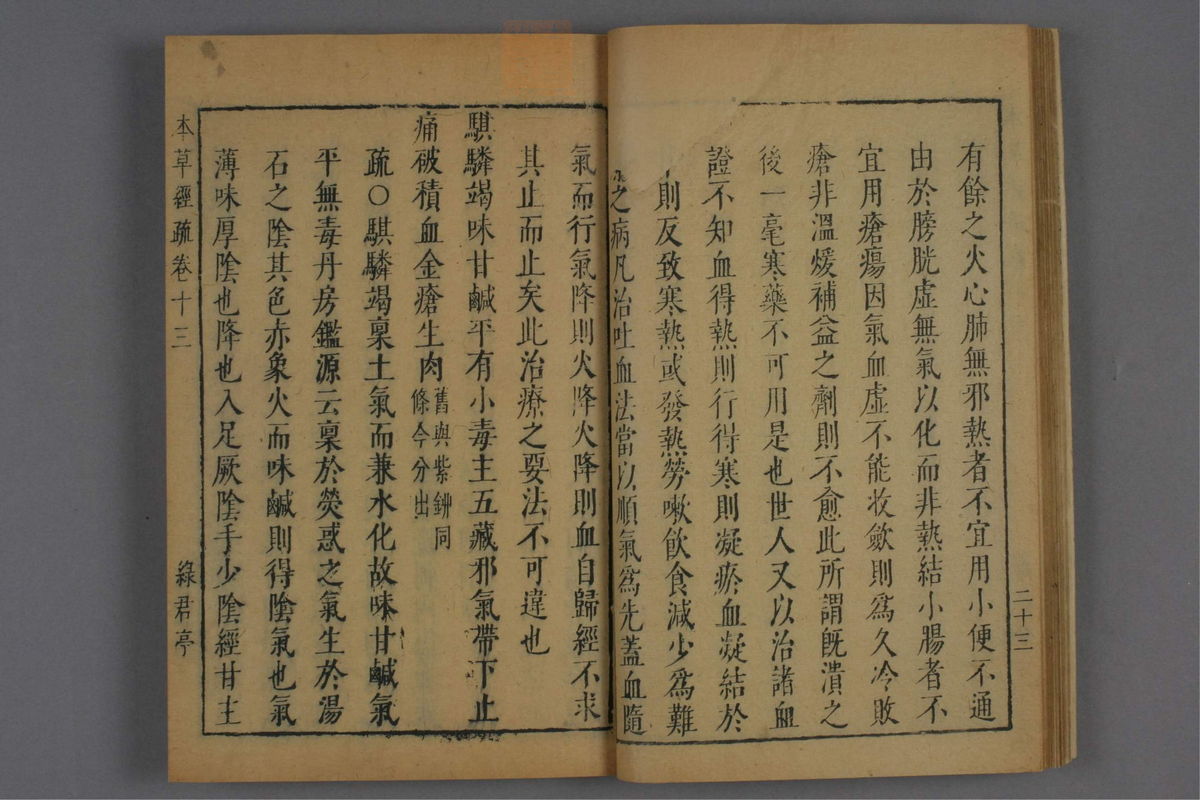 有餘之火心肺無邪熱者不宜用小便不通
由於膀胱虛無氣以化而非熱結小腸者不
宜用瘡瘍因氣血虛不能收斂則爲久冷敗
瘡非溫煖補益之劑則不愈此所謂旣潰之
後一毫寒藥不可用是也世人又以治諸血
證不知血得熱則行得寒則凝瘀血凝結於
則反致寒熱或發熱勞嗽飲食減少爲難
之病凡治吐血法當以順氣爲先蓋血隨
二十三
氣而行氣降則火降火降則血自歸經不求
其止而止矣此治療之要法不可違也
騏驎竭味甘鹹平有小毒主五藏邪氣帶下止
痛破積血金瘡生肉舊與紫鉚同
條今分出
疏○騏驎竭稟土氣而兼水化故味甘鹹氣
平無毒丹房鑑源云稟於熒惑之氣生於湯
石之陰其色赤象火而味鹹則得陰氣也氣
薄味厚陰也降也入足厥陰手少陰經甘主
本草經疏卷十三
綠君亭